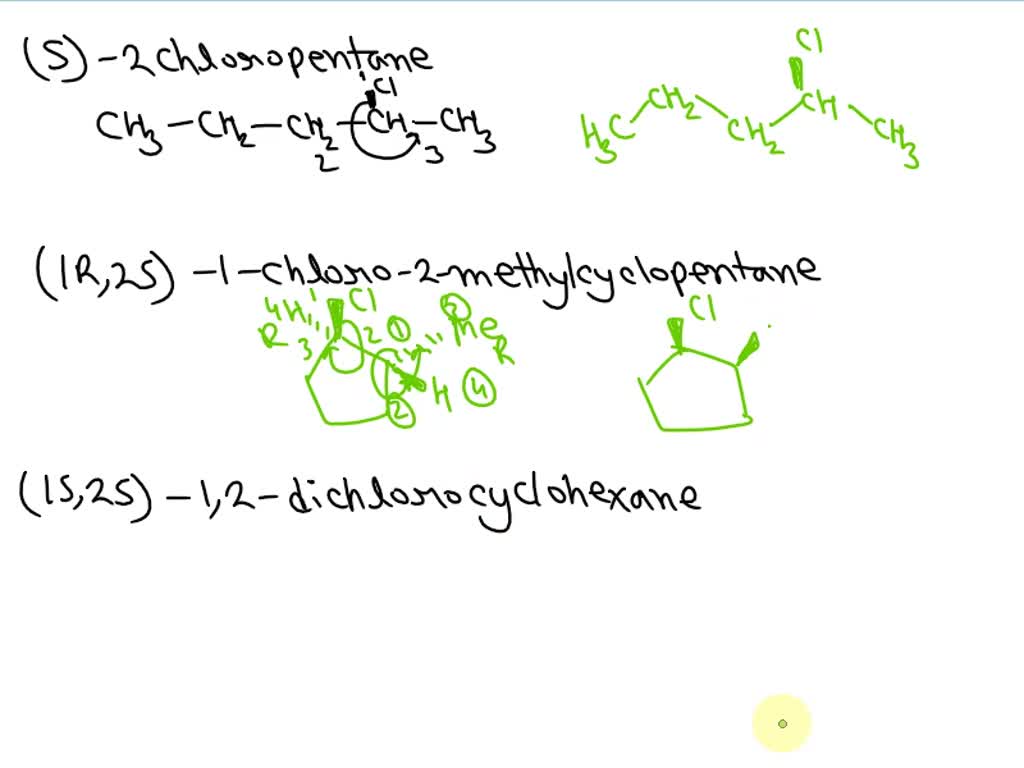 (S)-2chloropentane
Cl
CH3-CH2-CH2-CH-CH3
2 3
Cl
H3C CH2 CH2 CH CH3
(1R,2S)-1-chloro-2-methylcyclopentane
4H 1 Cl 2 1 3 Me
R 3 R
H 4
2
Cl
(1S,2S)-1,2-dichlorocyclohexane